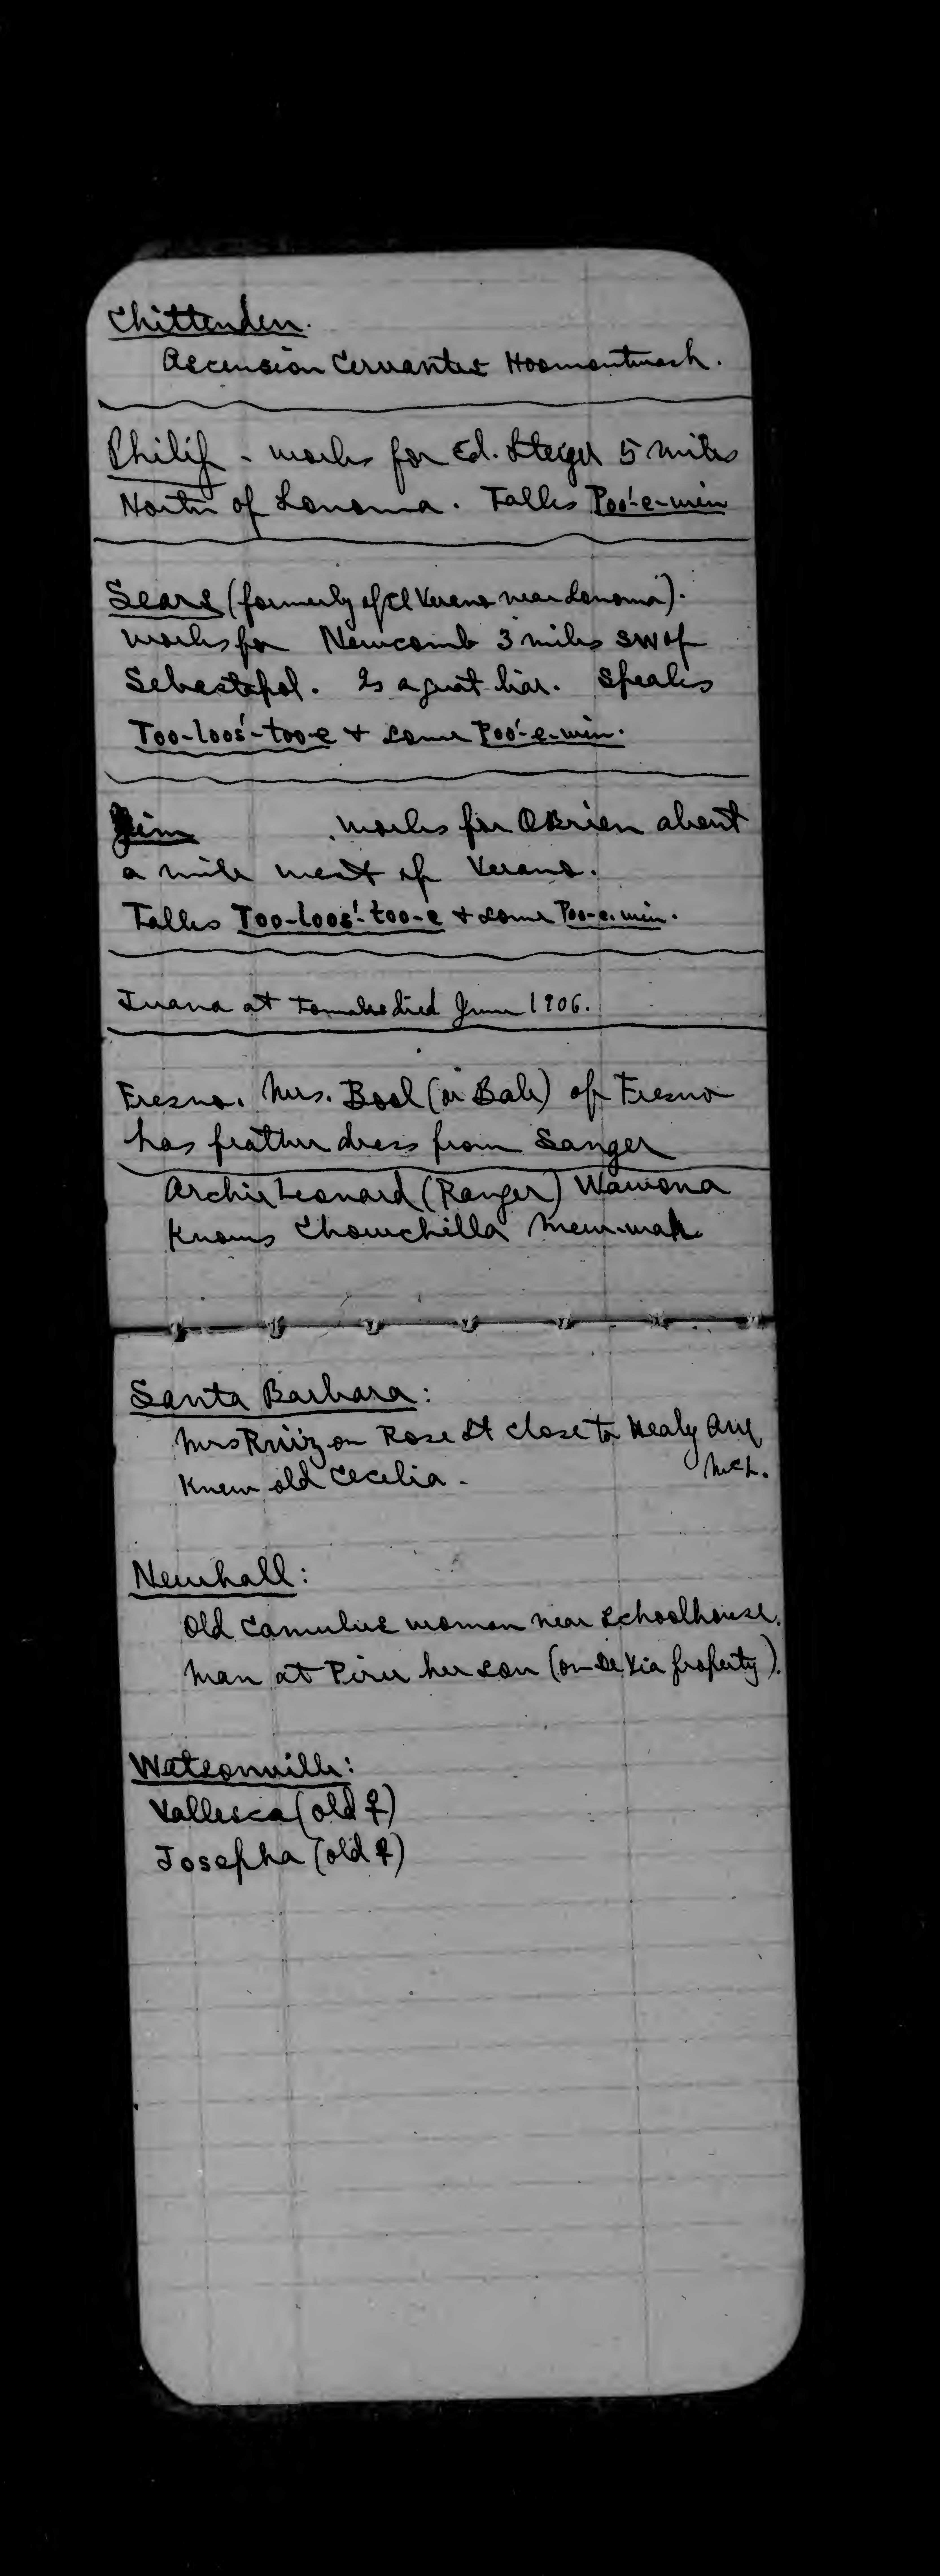 Chittenden.
Ascension Cervantes Hoomontwash.
Philip - works for Ed. Steiger 5 miles
North of Sonoma. Talks Poo'-e-win
Sears (formerly of El Verano near Sonoma).
works for Newcomb 3 miles SW of
Sebastopol. Is a great liar. Speaks
Too-loos'-too-e + some Poo'-e-win.
Jim works for OBrien about
a mile west of Verano.
Talks Too-loos'-too-e + some Poo-e-win.
Juana at died June 1906.
Fresno. Mrs. Bool (or Bale) of Fresno
has feather dress from Sanger
Archie Leonard (Ranger) Wawona
Knows Chowchilla
Santa Barbara:
Mrs Ruiz on Rose St close to Healy
Knew old Cecelia.
Newhall:
Old Camulus woman near schoolhouse.
Man at Piru her son (on property).
Watsonville:
Vallesca (old ♀)
Josepha (old ♀)